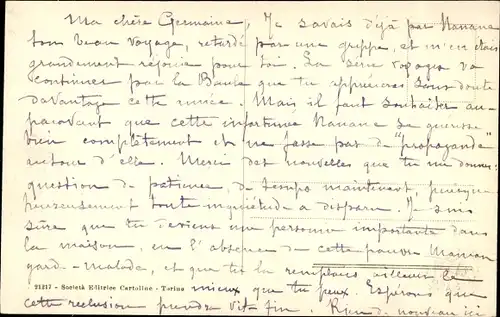 Ma chère Germaine, Je savais déjà par Nanane
ton beau voyage, retardé par une grippe, et m'en étais
grandement réjouie pour toi. La série voyages va
continuer par la Baule que tu apprécieras sans doute
davantage cette année. Mais il faut souhaiter au-
paravant que cette infortunée Nanane se guérisse
bien complètement et ne fasse pas de "propagande"
autour d'elle. Merci des nouvelles que tu me donnes,
question de patience, de temps maintenant, puisque
heureusement toute inquiétude a disparu. Je suis
sûre que tu deviens une personne importante dans
la maison, en l'absence de cette pauvre Maman
garde-malade, et que tu la remplaces ailleurs le
mieux que tu peux. Espérons que
21217 - Società Editrice Cartoline - Torino
cette réclusion prendra vite fin. Rien de nouveau ici